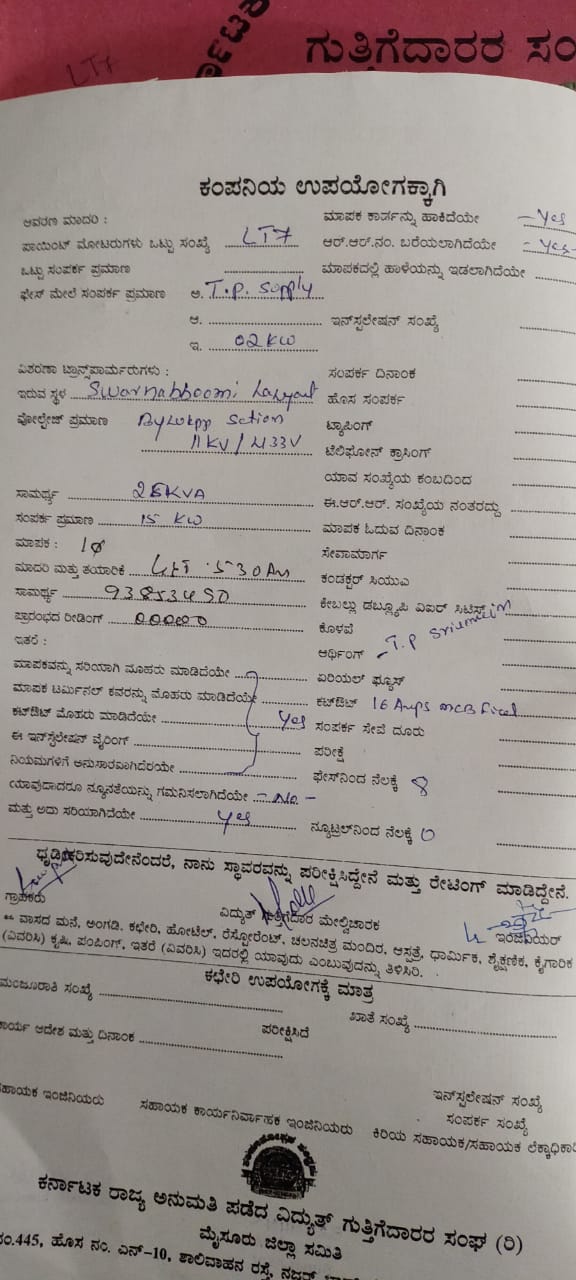 LT7
ಗುತ್ತಿಗೆದಾರರ ಸಂ
ಕಂಪನಿಯ ಉಪಯೋಗಕ್ಕಾಗಿ
ಆವರಣ ಮಾದರಿ :
ಮಾಪಕ ಕಾರ್ಡನ್ನು ಹಾಕಿದೆಯೇ - Yes
ಪಾಯಿಂಟ್ ಮೋಟರುಗಳು ಒಟ್ಟು ಸಂಖ್ಯೆ LT7
ಆರ್.ಆರ್.ನಂ. ಬರೆಯಲಾಗಿದೆಯೇ - Yes-
ಒಟ್ಟು ಸಂಪರ್ಕ ಪ್ರಮಾಣ
ಮಾಪಕದಲ್ಲಿ ಹಾಳೆಯನ್ನು ಇಡಲಾಗಿದೆಯೇ
ಫೇಸ್ ಮೇಲೆ ಸಂಪರ್ಕ ಪ್ರಮಾಣ ಅ. T.P. Supply
ಆ.
ಇನ್‌ಸ್ಟಲೇಷನ್ ಸಂಖ್ಯೆ
ಇ. 02 KW
ವಿತರಣಾ ಟ್ರಾನ್ಸ್‌ಪಾರ್ಮರುಗಳು :
ಸಂಪರ್ಕ ದಿನಾಂಕ
ಇರುವ ಸ್ಥಳ Swarnabhoomi Layout
ಹೊಸ ಸಂಪರ್ಕ
ವೋಲ್ಟೇಜ್ ಪ್ರಮಾಣ
ಟ್ಯಾಪಿಂಗ್
11KV/433V
ಟೆಲಿಫೋನ್ ಕ್ರಾಸಿಂಗ್
ಯಾವ ಸಂಖ್ಯೆಯ ಕಂಬದಿಂದ
ಸಾಮರ್ಥ್ಯ 25KVA
ಈ.ಆರ್.ಆರ್. ಸಂಖ್ಯೆಯ ನಂತರದ್ದು
ಸಂಪರ್ಕ ಪ್ರಮಾಣ 15 KW
ಮಾಪಕ ಓದುವ ದಿನಾಂಕ
ಮಾಪಕ : 1φ
ಸೇವಾಮಾರ್ಗ
ಮಾದರಿ ಮತ್ತು ತಯಾರಿಕೆ L&T 5-30 Am
ಕಂಡಕ್ಟರ್ ಸಿಯುಎ
ಸಾಮರ್ಥ್ಯ
ಕೇಬಲ್ಲು ಡಬ್ಲ್ಯೂಪಿ ಎಐರ್ ಸಿಟಿಸ್ಟ್
ಪ್ರಾರಂಭದ ರೀಡಿಂಗ್ 00000
ಕೊಳವೆ
ಇತರೆ :
ಆರ್ಥಿಂಗ್ - T.P
ಮಾಪಕವನ್ನು ಸರಿಯಾಗಿ ಮೊಹರು ಮಾಡಿದೆಯೇ
ಏರಿಯಲ್ ಫ್ಯೂಸ್
ಮಾಪಕ ಟರ್ಮಿನಲ್ ಕವರನ್ನು ಮೊಹರು ಮಾಡಿದೆಯೇ
ಕಟ್‌ಔಟ್ 16 Amps MCB Fixed
ಕಟ್‌ಔಟ್ ಮೊಹರು ಮಾಡಿದೆಯೇ Yes
ಸಂಪರ್ಕ ಸೇವೆ ದೂರು
ಈ ಇನ್‌ಸ್ಟಲೇಷನ್ ವೈರಿಂಗ್
ಪರೀಕ್ಷೆ
ನಿಯಮಗಳಿಗೆ ಅನುಸಾರವಾಗಿದೆರಯೇ
ಫೇಸ್‌ನಿಂದ ನೆಲಕ್ಕೆ 8
ಯಾವುದಾದರೂ ನ್ಯೂನತೆಯನ್ನು ಗಮನಿಸಲಾಗಿದೆಯೇ - No -
ಮತ್ತು ಅದು ಸರಿಯಾಗಿದೆಯೇ Yes
ನ್ಯೂಟ್ರಲ್‌ನಿಂದ ನೆಲಕ್ಕೆ 0
ಧೃಡೀಕರಿಸುವುದೇನೆಂದರೆ, ನಾನು ಸ್ಥಾವರವನ್ನು ಪರೀಕ್ಷಿಸಿದ್ದೇನೆ ಮತ್ತು ರೇಟಿಂಗ್ ಮಾಡಿದ್ದೇನೆ.
ಗ್ರಾಹಕರು
ವಿದ್ಯುತ್ ಗುತ್ತಿಗೆದಾರ ಮೇಲ್ವಿಚಾರಕ
ಇಂಜಿನಿಯರ್
** ವಾಸದ ಮನೆ, ಅಂಗಡಿ. ಕಛೇರಿ, ಹೋಟೆಲ್, ರೆಸ್ಟೋರೆಂಟ್, ಚಲನಚಿತ್ರ ಮಂದಿರ, ಆಸ್ಪತ್ರೆ, ಧಾರ್ಮಿಕ, ಶೈಕ್ಷಣಿಕ, ಕೈಗಾರಿಕ
(ವಿವರಿಸಿ) ಕೃಷಿ, ಪಂಪಿಂಗ್, ಇತರೆ (ವಿವರಿಸಿ) ಇದರಲ್ಲಿ ಯಾವುದು ಎಂಬುವುದನ್ನು ತಿಳಿಸಿರಿ.
ಕಛೇರಿ ಉಪಯೋಗಕ್ಕೆ ಮಾತ್ರ
ಮಂಜೂರಾತಿ ಸಂಖ್ಯೆ
ಖಾತೆ ಸಂಖ್ಯೆ
ಕಾರ್ಯ ಆದೇಶ ಮತ್ತು ದಿನಾಂಕ
ಪರೀಕ್ಷಿಸಿದೆ
ಇನ್‌ಸ್ಟಲೇಷನ್ ಸಂಖ್ಯೆ
ಸಂಪರ್ಕ ಸಂಖ್ಯೆ
ಸಹಾಯಕ ಇಂಜಿನಿಯರು
ಸಹಾಯಕ ಕಾರ್ಯನಿರ್ವಾಹಕ ಇಂಜಿನಿಯರು
ಕಿರಿಯ ಸಹಾಯಕ/ಸಹಾಯಕ ಲೆಕ್ಕಾಧಿಕಾರಿ
ಕರ್ನಾಟಕ ರಾಜ್ಯ ಅನುಮತಿ ಪಡೆದ ವಿದ್ಯುತ್ ಗುತ್ತಿಗೆದಾರರ ಸಂಘ (ರಿ)
ಮೈಸೂರು ಜಿಲ್ಲಾ ಸಮಿತಿ
ನಂ.445, ಹೊಸ ನಂ. ಎನ್-10, ಶಾಲಿವಾಹನ ರಸ್ತೆ, ನಜರ್